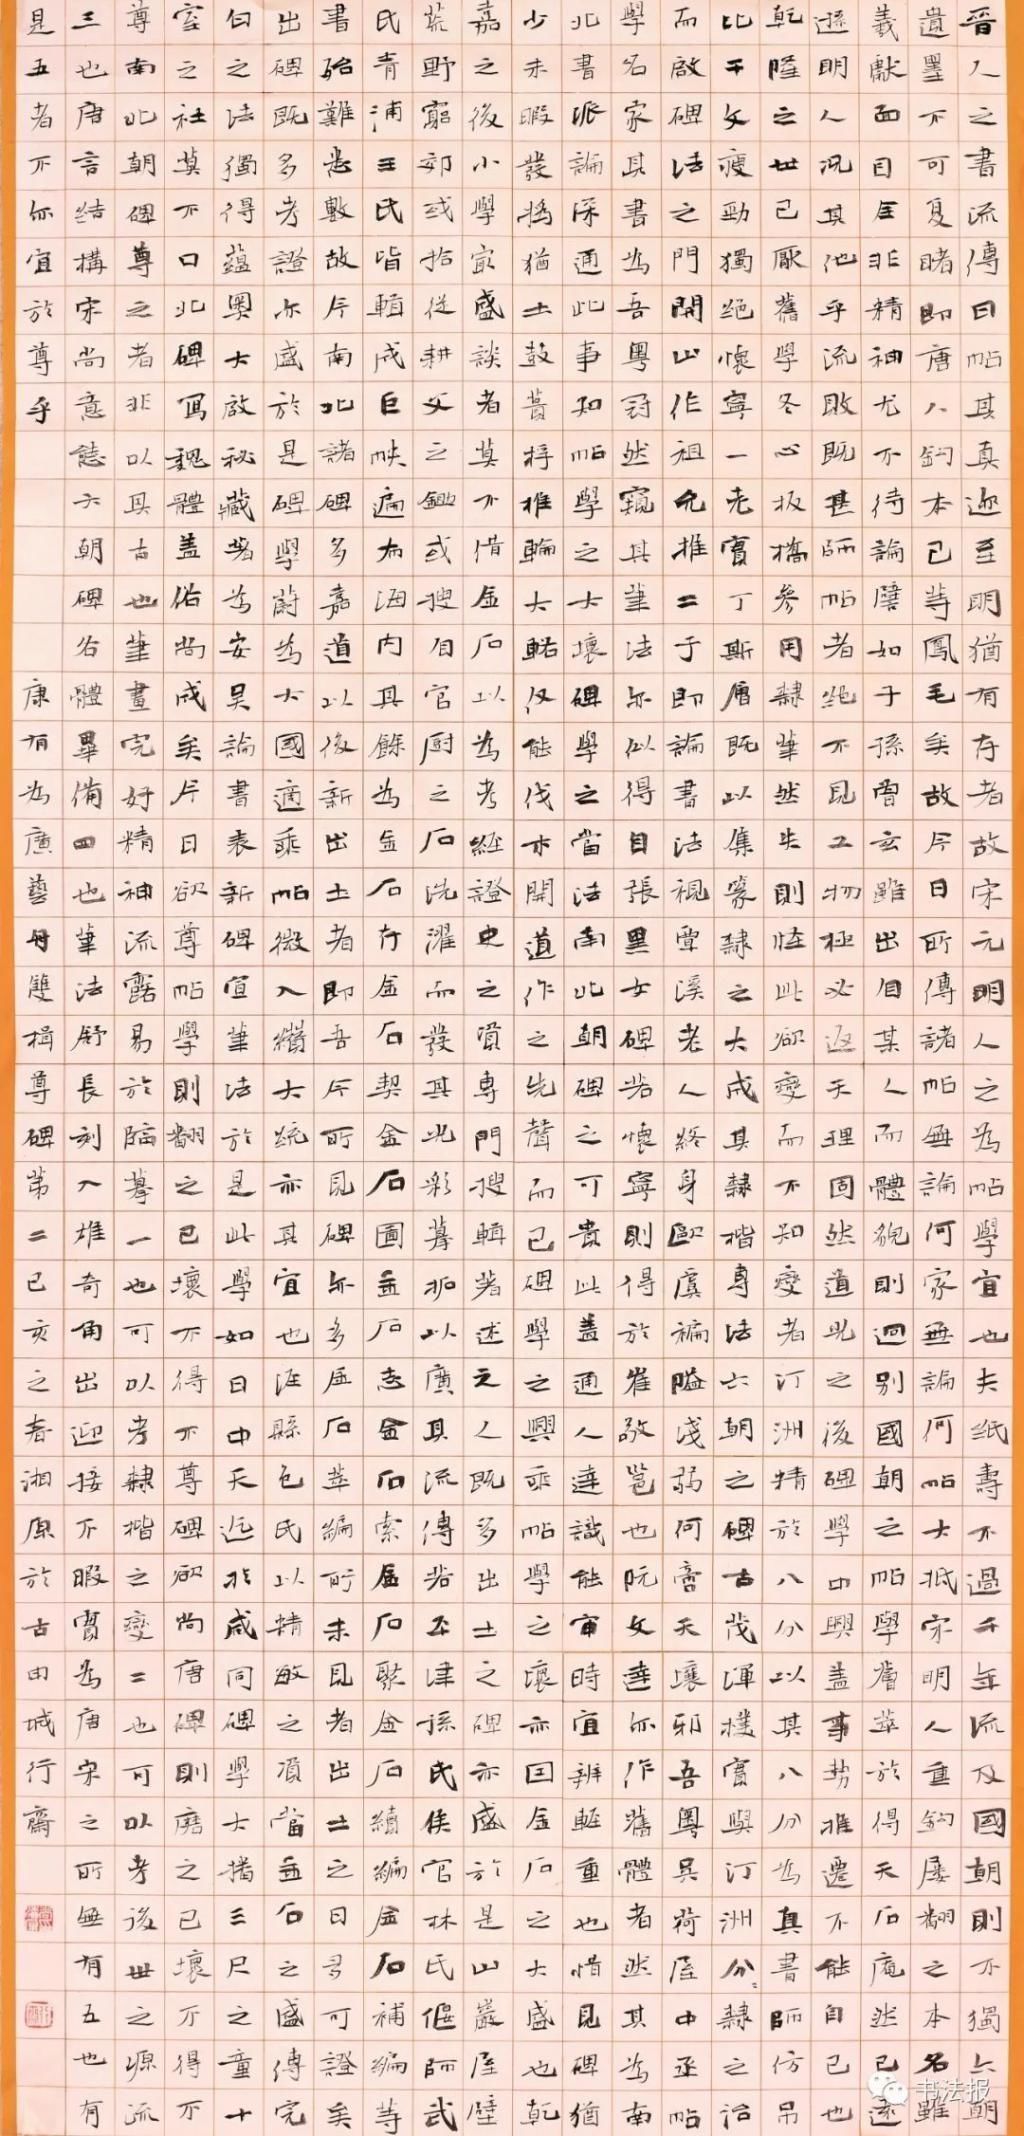 晉人之書流傳曰帖其真迹至明猶有存者故宋元明人之為帖學宜也夫紙壽不過千年流及國朝則不獨六朝
遺墨不可復睹即唐人鈎本已等鳳毛矣故今日所傳諸帖無論何家無論何帖大抵宋明人重鈎屡翻之本名雖
羲獻面目全非精神尤不待論譬如子孫曾玄雖出自某人而體貌則迥別國朝之帖學薈萃於得天石庵然已遠
遜明人况其他乎流敗既甚師帖者絕不見工物極必返天理固然道光之後碑學中興蓋事勢推遷不能自已也
乾隆之世已厭舊學冬心板橋參用隸筆然失則怪此欲變而不知變者汀洲精於八分以其八分為真書師仿吊
比干文瘦勁獨絕懷寧一老實丁斯曆既以集篆隸之大成其隸楷專法六朝之碑古茂渾樸實與汀洲分隸之治
而啟碑法之門開山作祖允推二子即論書法視覃溪老人終身歐虞褊隘淺弱何啻天壤邪吾粵吴荷屋中丞帖
學名家其書為吾粵冠然窺其筆法亦似得自張黑女碑若懷寧則得於崔敬邕也阮文達亦作舊體者然其為南
北書派論深通此事知帖學之大壞碑學之當法南北朝碑之可貴此蓋通人達識能審時宜辨輕重也惜見碑猶
少未暇發揚猶土鼓蕢桴椎輪大輅仅能伐木開道作之先聲而已碑學之興乘帖學之壞亦因金石之大盛也乾
嘉之後小學最盛談者莫不借金石以為考經證史之資專門搜輯著述之人既多出土之碑亦盛於是山巖屋壁
荒野窮郊或拾從耕父之鋤或搜自官厨之石洗濯而發其光彩摹拓以廣其流傳若平津孫氏侯官林氏偃師武
氏青浦王氏皆輯成巨帙遍布海内其餘為金石存金石契金石圖金石志金石索金石聚金石續編金石補編等
書殆難悉數故今南北諸碑多嘉道以後新出土者即吾今所見碑亦多金石萃編所未見者出土之日多可證矣
出碑既多考證亦盛於是碑學蔚為大國適乘帖微入纘大統亦其宜也涇縣包氏以精敏之資當金石之盛傳完
白之法獨得蘊奥大啟秘藏著為安吴論書表新碑宣筆法於是此學如日中天迄於咸同碑學大播三尺之童十
室之社莫不口北碑寫魏體蓋俗尚成矣今日欲尊帖學則翻之已壞不得不尊碑欲尚唐碑則磨之已壞不得不
尊南北朝碑尊之者非以其古也筆畫完好精神流露易於臨摹一也可以考隸楷之變二也可以考後世之源流
三也唐言結構宋尚意態六朝碑各體畢備四也筆法舒長刻入雄奇角出迎接不暇實為唐宋之所無有五也有
是五者不亦宜於尊乎
康有為廣藝舟雙楫尊碑第二己亥之春湘原於古田城行齋
书法报